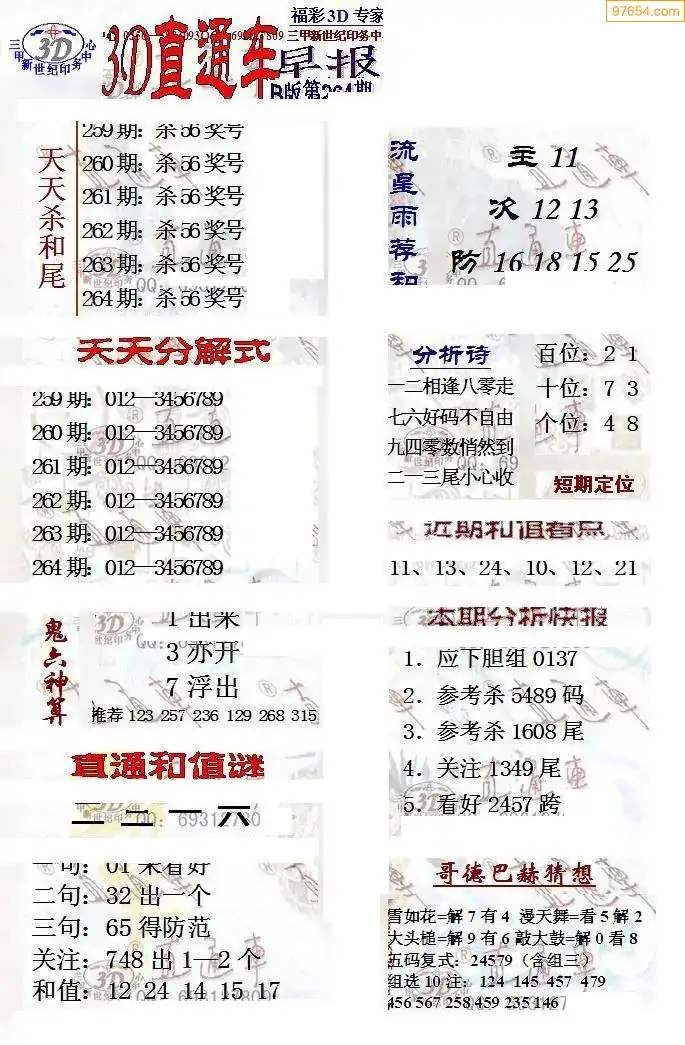 97654.com
福彩3D专家
三甲新世纪印务中心
3D
三甲新世纪印务中
3D直通车早报
B版第264期
天天杀和尾
259期：杀56奖号
260期：杀56奖号
261期：杀56奖号
262期：杀56奖号
263期：杀56奖号
264期：杀56奖号
流星雨荐和
主 11
次 12 13
防 16 18 15 25
天天分解式
259期：012—3456789
260期：012—3456789
261期：012—3456789
262期：012—3456789
263期：012—3456789
264期：012—3456789
分析诗
一二相逢八零走
七六好码不自由
九四零数悄然到
二一三尾小心收
百位：2 1
十位：7 3
个位：4 8
短期定位
近期和值看点
11、13、24、10、12、21
鬼六神算
1出来
3亦开
7浮出
推荐 123 257 236 129 268 315
本期分析快报
1. 应下胆组 0137
2. 参考杀 5489 码
3. 参考杀 1608 尾
4. 关注 1349 尾
5. 看好 2457 跨
直通和值谜
一二一六
一句：01来看好
二句：32出一个
三句：65得防范
关注：748出1—2个
和值：12 24 14 15 17
哥德巴赫猜想
雪如花=解7有4 漫天舞=看5解2
大头槌=解9有6 敲大鼓=解0看8
五码复式：24579（含组三）
组选10注：124 145 457 479
456 567 258 459 235 146